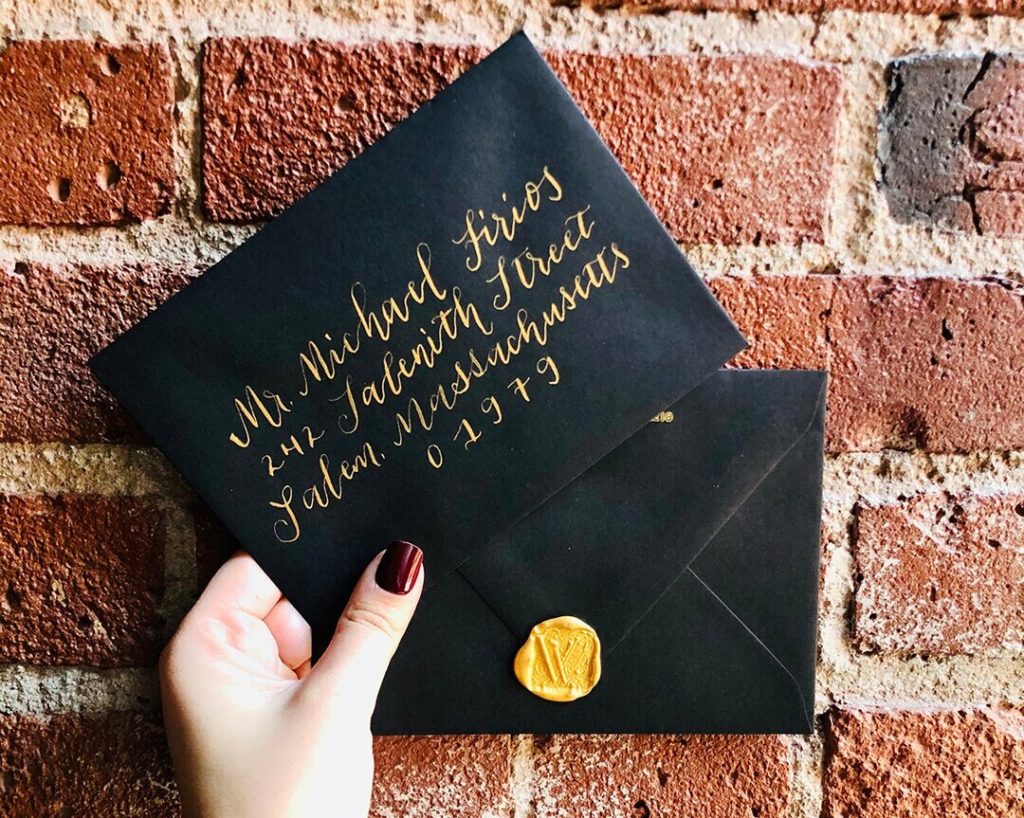 Mr. Michael Sirios
242 Salenith Street
Salem, Massachusetts
01979
W